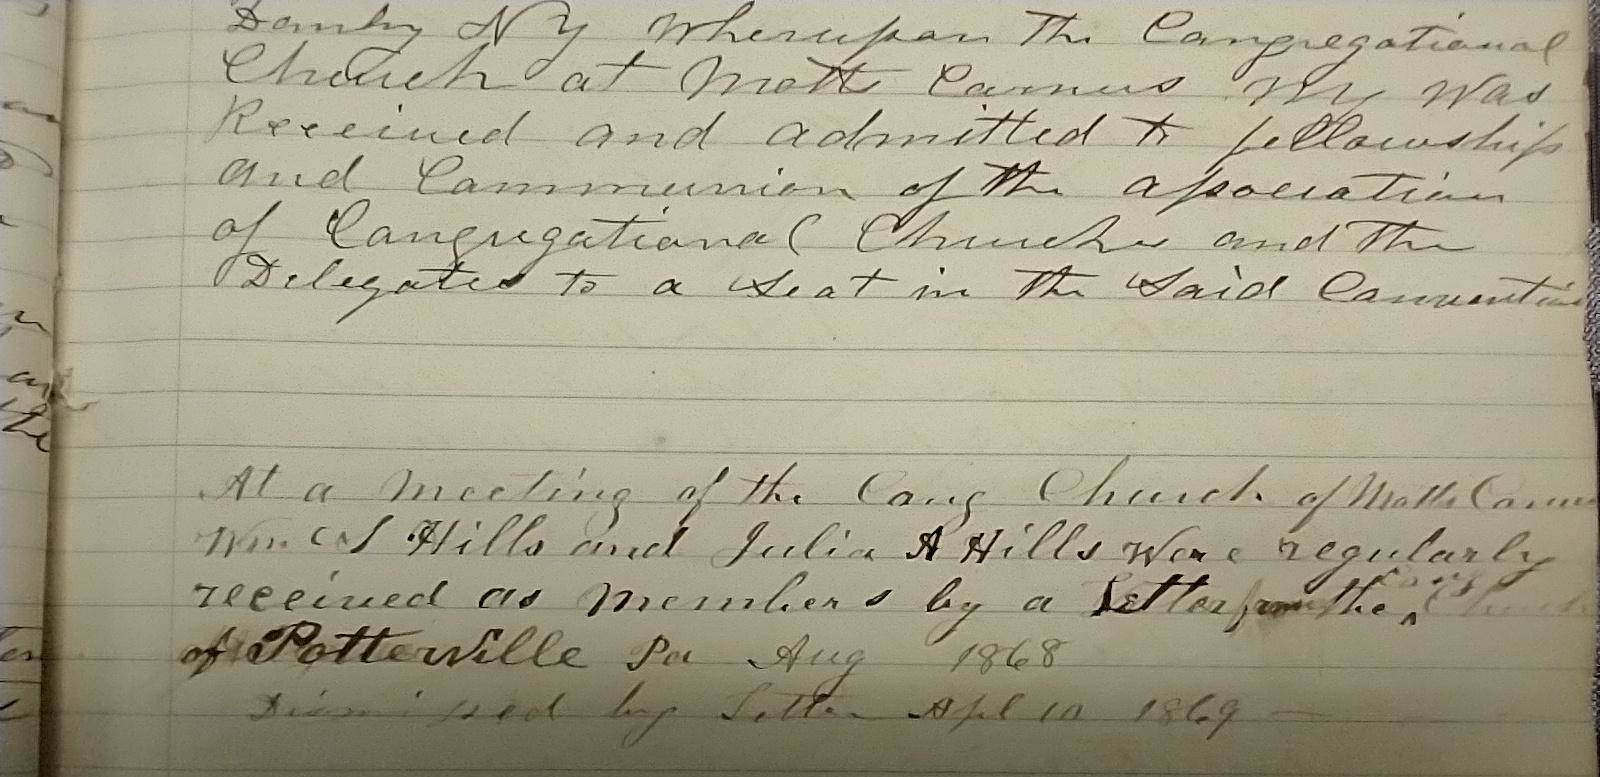 Danby NY Whereupon the Congregational
Church at Motts Corners NY Was
Received and admitted to fellowship
and Communion of the association
of Congregational Churches and the
Delegates to a Seat in the Said Convention
At a Meeting of the Cong Church of Motts Corners
Wm S Hills and Julia A Hills Were regularly
received as Members by a Letter from the Cong Church
of Potterville Pa Aug 1868
Dismissed by Letter Apl 10 1869